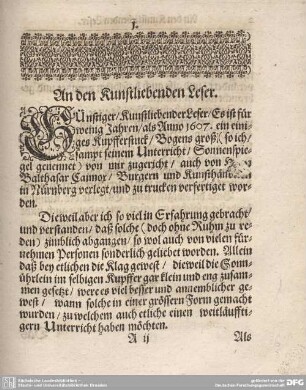 1.
An den Kunstliebenden Leser.
GUnstiger / Kunstliebender Leser / Es ist für
wenig Jahren / als Anno 1607. ein eini-
ges Kupfferstuck / Bogens groß / (so ich /
sampt seinem Unterricht / Sonnenspie-
gel genennet) von mir zugericht / auch von
Balthasar Camox / Burgern und Kunsthänd
in Nürnberg verlegt / und zu trucken verfertiget wor-
den.
Dieweil aber ich so viel in Erfahrung gebracht /
und verstanden / daß solche (doch ohne Ruhm zu re-
den) zimblich abgangen / so wol auch von vielen für-
nehmen Personen sonderlich geliebet worden. Allein
daß bey etlichen die Klag gewest / dieweil die Son-
nührlein im selbigen Kupffer gar klein und eng zusam-
men gesetzt / were es viel besser und annemblicher ge-
west / wann solche in einer grössern Form gemacht
wurden / zu welchem auch etliche einen weitläufti-
gern Unterricht haben möchten.
A ij Als
Sächsische Landesbibliothek -
Staats- und Universitätsbibliothek Dresden
gefördert von der
Deutschen Forschungsgemeinschaft
DFG